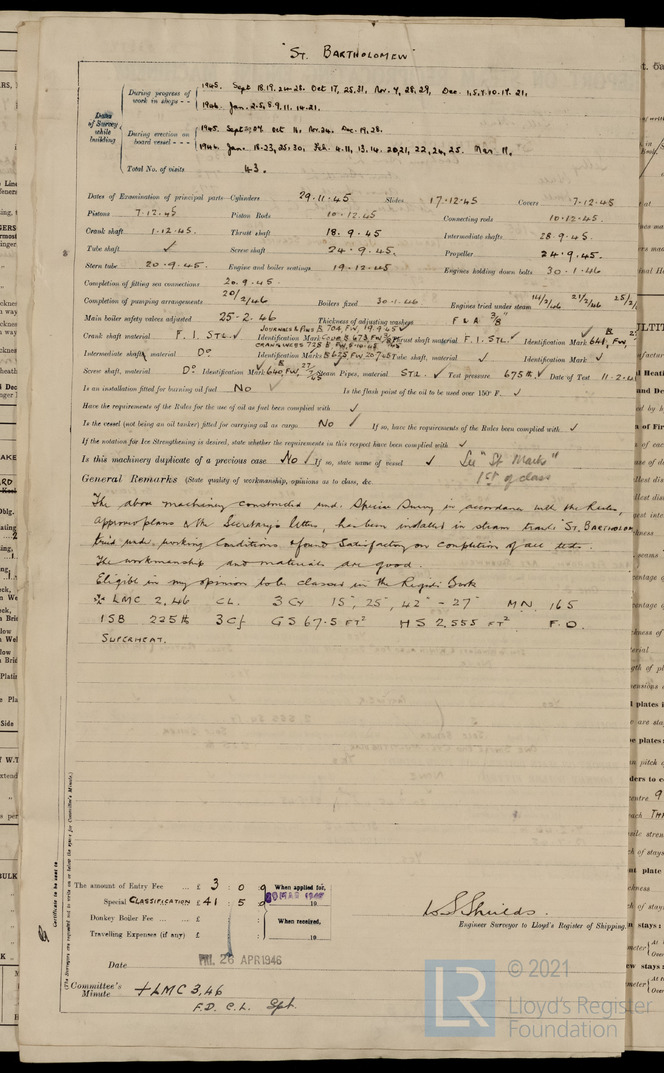 "ST. BARTHOLOMEW"
Dates of Survey while building
During progress of work in shops - -
1945. Sept 18.19.24-28. Oct 17, 25.31, Nov. 7, 28, 29, Dec. 1.5.7.10.19. 21,
1946. Jan. 2.5.8.9.11. 14.21.
During erection on board vessel - - -
1945. Oct 16. Nov. 24. Dec. 19.28.
1946. Jan. 18-23, 25.30, Feb. 4.11, 13.14. 20,21, 22,24, 25. Mar. 11.
Total No. of visits 43.
Dates of Examination of principal parts—Cylinders 29.11.45 Slides 17.12.45 Covers 7.12.45
Pistons 7.12.45 Piston Rods 10.12.45 Connecting rods 10.12.45
Crank shaft 1.12.45. Thrust shaft 18.9.45 Intermediate shafts 28.9.45.
Tube shaft ✓ Screw shaft 24.9.45. Propeller 24.9.45.
Stern tube 20.9.45. Engine and boiler seatings 19.12.45 Engines holding down bolts 30.1.46
Completion of fitting sea connections 20.9.45.
Completion of pumping arrangements 20/2/46 Boilers fixed 30.1.46 Engines tried under steam 14/2/46 21/2/46 25/2/
Main boiler safety valves adjusted 25.2.46 Thickness of adjusting washers F & A 3/8"
Crank shaft material F. I. STL ✓ Identification Mark JOURNALS & PINS B 704, FW, 19.9.45 Thrust shaft material F. I. STL ✓ Identification Mark 641, FW,
Intermediate shafts, material Do Identification Marks B 625, FW Tube shaft, material ✓ Identification Mark ✓
Screw shaft, material Do Identification Mark 640, FW, Steam Pipes, material STL ✓ Test pressure 675 lb ✓ Date of Test 11-2-4
Is an installation fitted for burning oil fuel NO ✓ Is the flash point of the oil to be used over 150°F. ✓
Have the requirements of the Rules for the use of oil as fuel been complied with ✓
Is the vessel (not being an oil tanker) fitted for carrying oil as cargo NO ✓ If so, have the requirements of the Rules been complied with ✓
If the notation for Ice Strengthening is desired, state whether the requirements in this respect have been complied with ✓
Is this machinery duplicate of a previous case NO ✓ If so, state name of vessel ✓ See "St Marks"
1st of class
General Remarks (State quality of workmanship, opinions as to class, &c.
The above machinery constructed under Special Survey in accordance with the Rules,
Approved plans & the Secretary's letters, has been installed in steam trawler "ST. BARTHOLOM
tried under working conditions & found satisfactory on completion of all tests.
The workmanship and materials are good.
Eligible in my opinion to be classed in the Register Book
✠ LMC 2,46 CL. 3 Cy 15", 25", 42" - 27" MN 165
1SB 225 lb 3 Cf GS 67.5 FT² HS 2,555 FT² F.D.
SUPERHEAT.
(The Surveyors are requested not to write on or below the space for Committee's Minute.)
Certificate to be sent to
The amount of Entry Fee ... £ 3 : 0 : 0 When applied for,
Special CLASSIFICATION £ 41 : 5 : 0 19
Donkey Boiler Fee ... ... £ : : When received,
Travelling Expenses (if any) £ : : 19
Engineer Surveyor to Lloyd's Register of Shipping.
Date FRI. 26 APR 1946
Committee's Minute + LMC 3,46
F.D. C.L. Spt.
LR © 2021
Lloyd's Register
Foundation